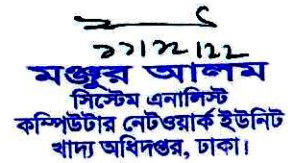 ১১/১২/২২
মঞ্জুর আলম
সিস্টেম এনালিস্ট
কম্পিউটার নেটওয়ার্ক ইউনিট
খাদ্য অধিদপ্তর, ঢাকা।